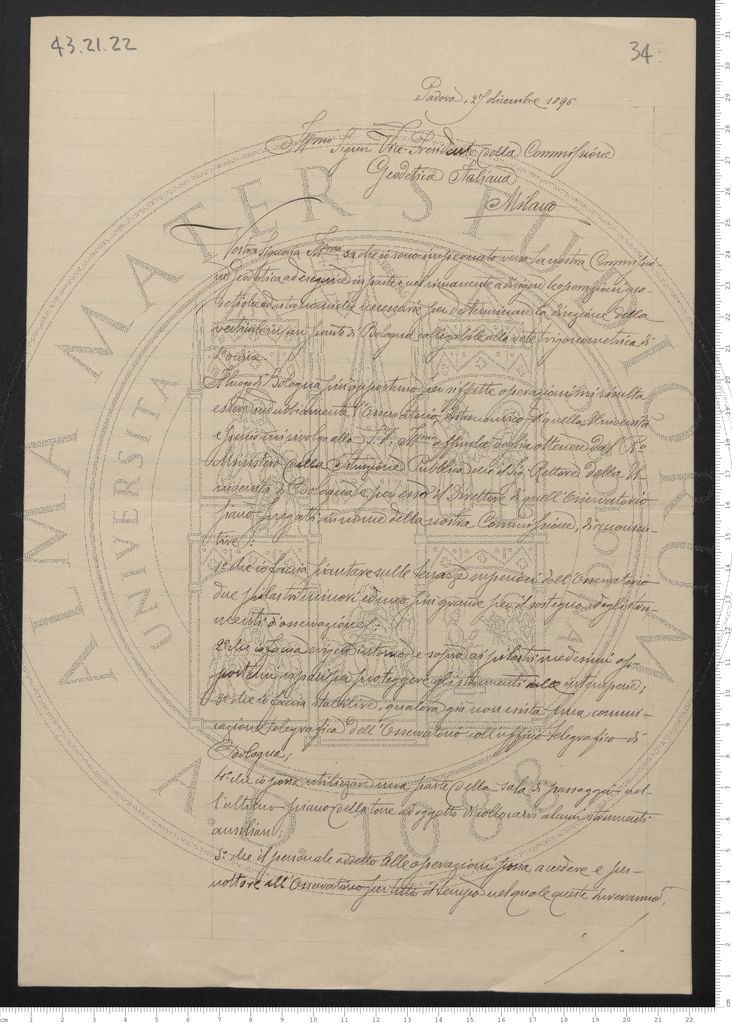 43.21.22
34
Padova, 27 dicembre 1896
Ill.mo Signor Vice-Presidente della Commissione
Geodetica Italiana
Milano
Vostra Signoria Ill.ma sa che io sono impegnato verso la nostra Commissio-
ne Geodetica ad eseguire in parte e nel rimanente a dirigere le operazioni geo-
detiche ed astronomiche necessarie per determinare la direzione della
verticale in un punto di Bologna collegabile alla rete trigonometrica di
1° ordine.
Il luogo di Bologna più opportuno per siffatte operazioni mi risulta
essere indubbiamente l'Osservatorio Astronomico di quella Università
e perciò mi rivolgo alla S. V. Ill.ma affinché voglia ottenere dal R.°
Ministero della Istruzione Pubblica che il Sig. Rettore della U-
niversità di Bologna e per esso il Direttore di quell'Osservatorio
siano pregati, in nome della nostra Commissione, di consen-
tire:
1° che io faccia piantare sulle terrazze superiori dell'Osservatorio
due pilastri minori ed uno più grande per il sostegno degli stru-
menti d'osservazione;
2° che io faccia erigere intorno e sopra ai pilastri medesimi op-
portuni ripari per proteggere gli strumenti dalle intemperie;
3° che io faccia stabilire, qualora già non esista, una comuni-
cazione telegrafica dell'Osservatorio coll'ufficio telegrafico di
Bologna;
4° che io possa utilizzare una parte della sala di passaggio nel-
l'ultimo piano della torre ad oggetto di collocarvi alcuni strumenti
ausiliari;
5° che il personale addetto alle operazioni possa accedere e per-
nottare all'Osservatorio per tutto il tempo nel quale queste dureranno.
ALMA MATER STUDIORUM
UNIVERSITÀ
A.D. 1088